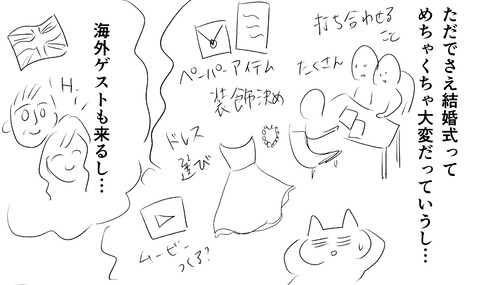 ただでさえ結婚式って
めちゃくちゃ大変だっていうし…
打ち合わせる
こと
たくさん
ペーパーアイテム
装飾決め
ドレス
選び
ムービー
つくる？
海外ゲストも来るし…
H